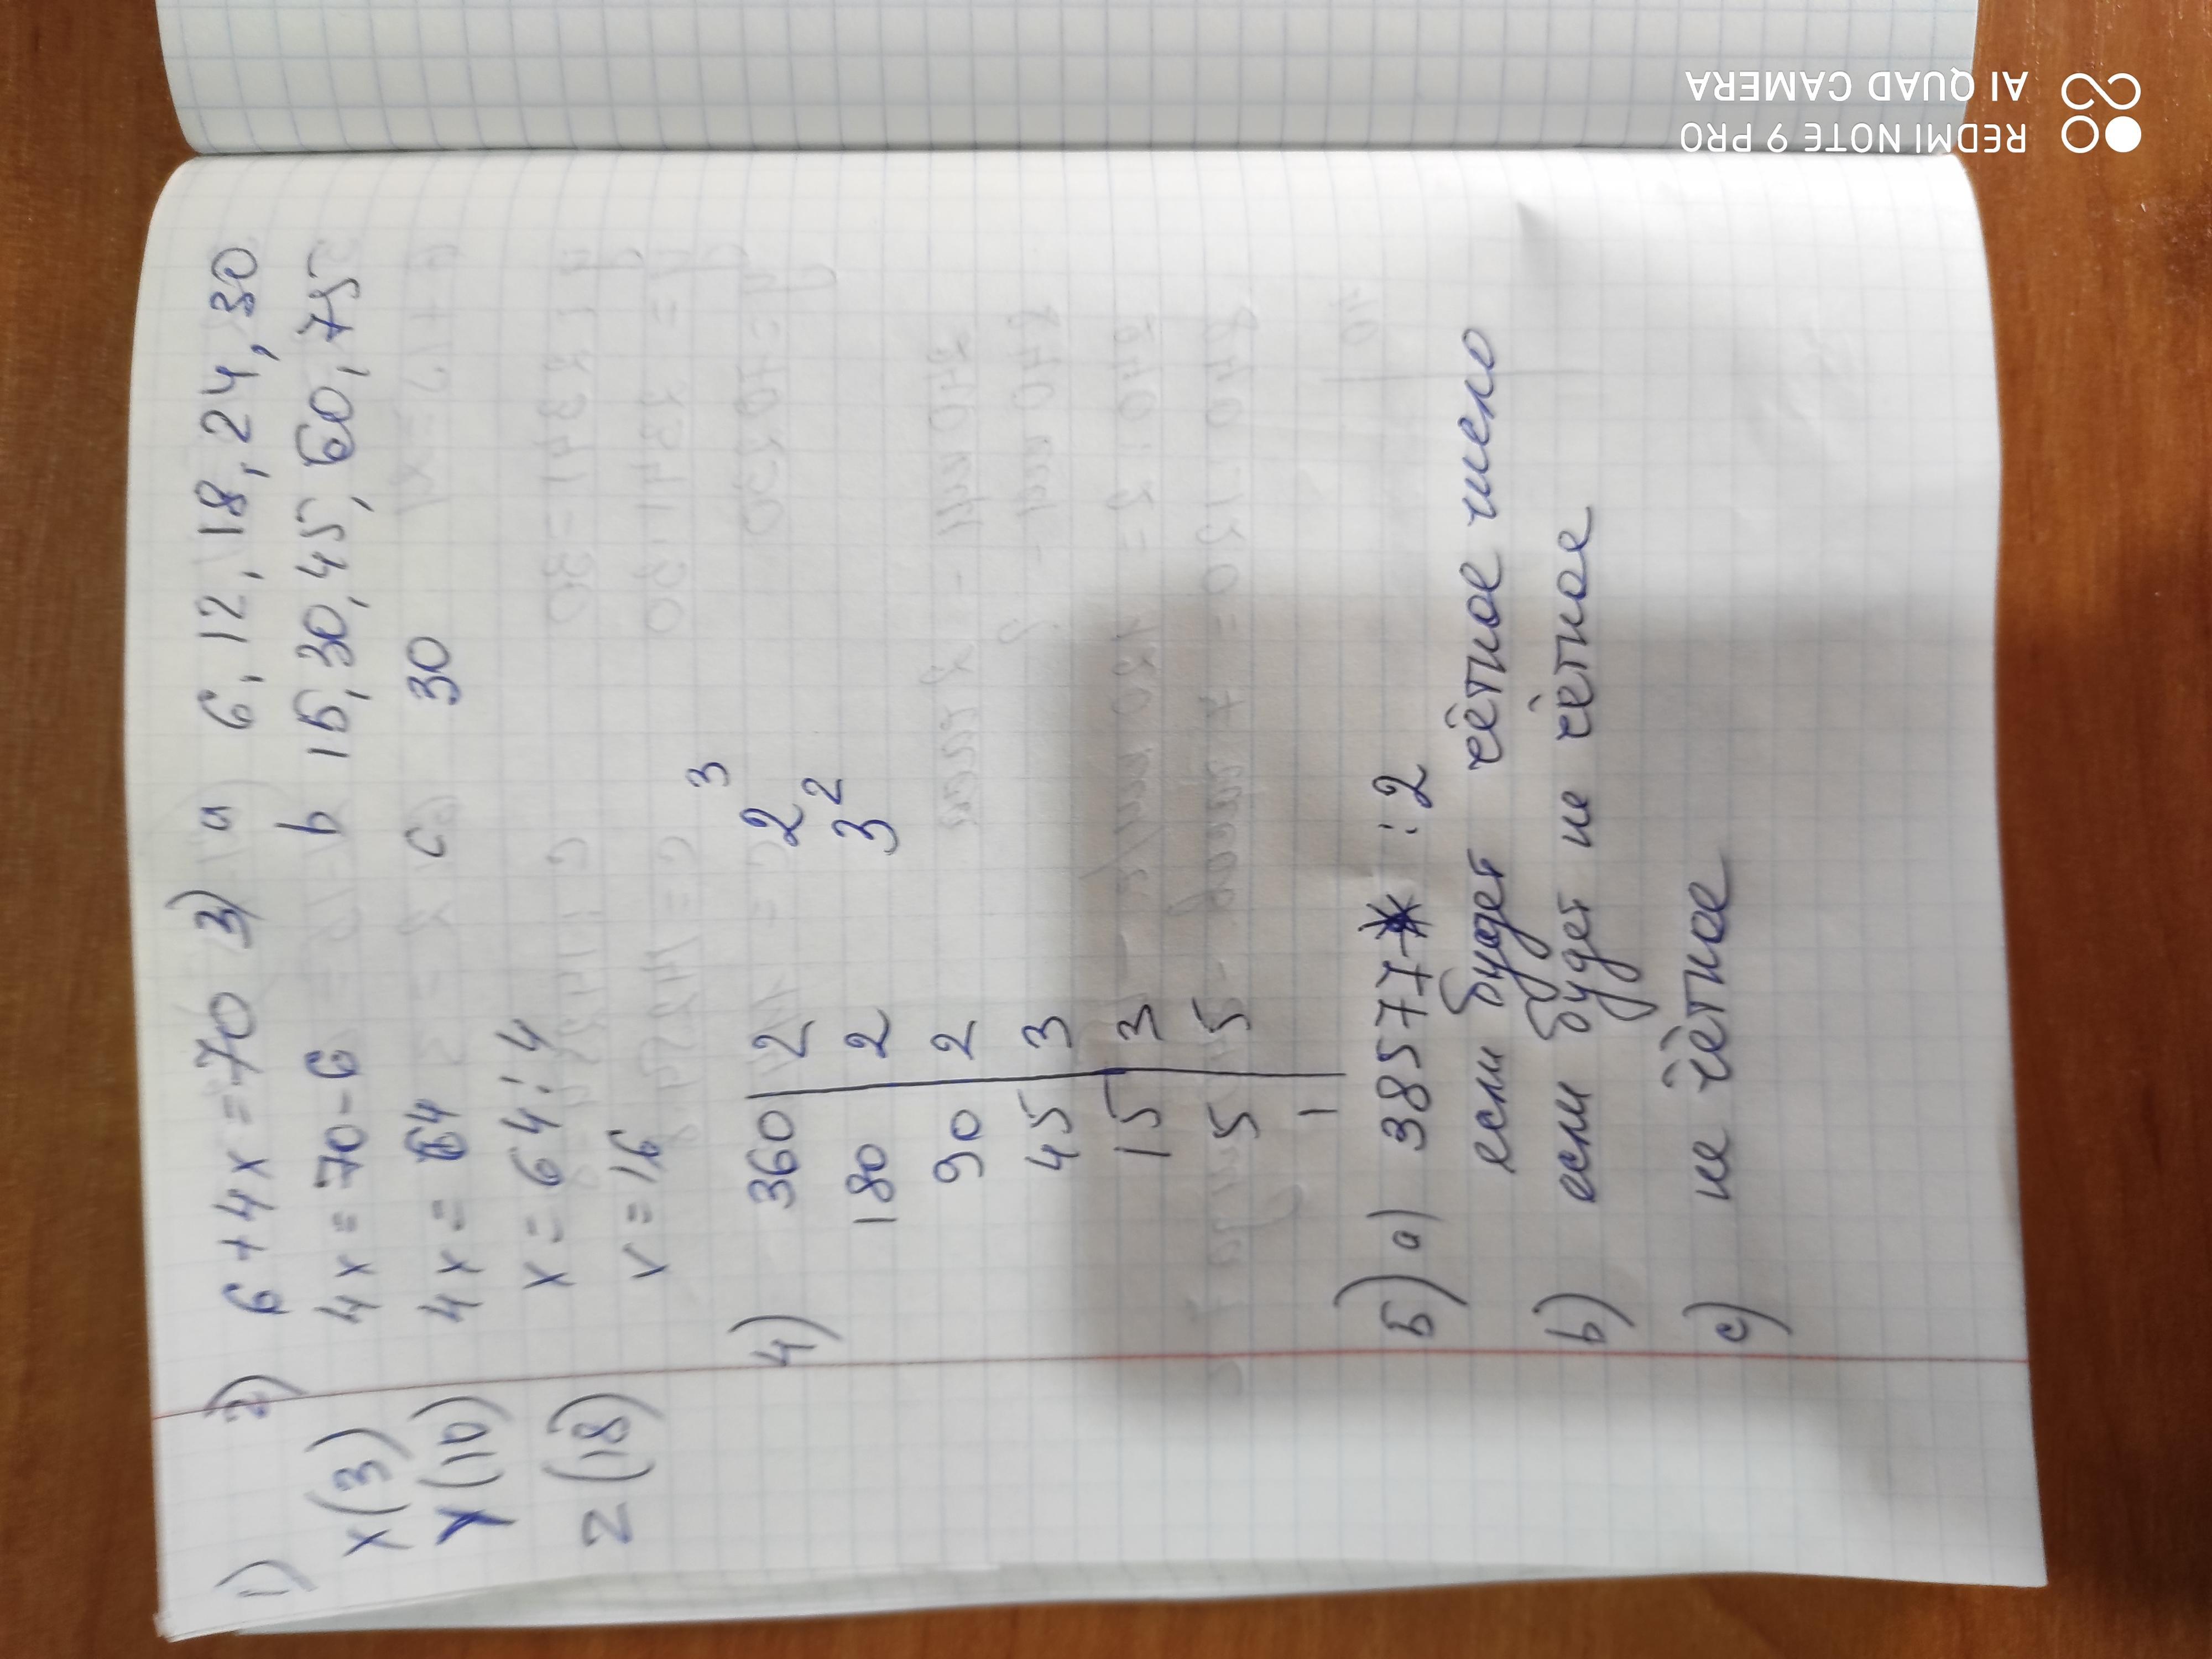 1)
x(3)
y(10)
z(18)
2) 6+4x=70
4x=70-6
4x=64
x=64:4
x=16
3) a 6, 12, 18, 24, 30
b 15, 30, 45, 60, 75
c 30
4) 360 2 2³
180 2 3²
90 2
45 3
15 3
5 5
1
5) a) 38577* :2
если будет чётное число
b) если будет не чётное
c) не чётное
REDMI NOTE 9 PRO
AI QUAD CAMERA